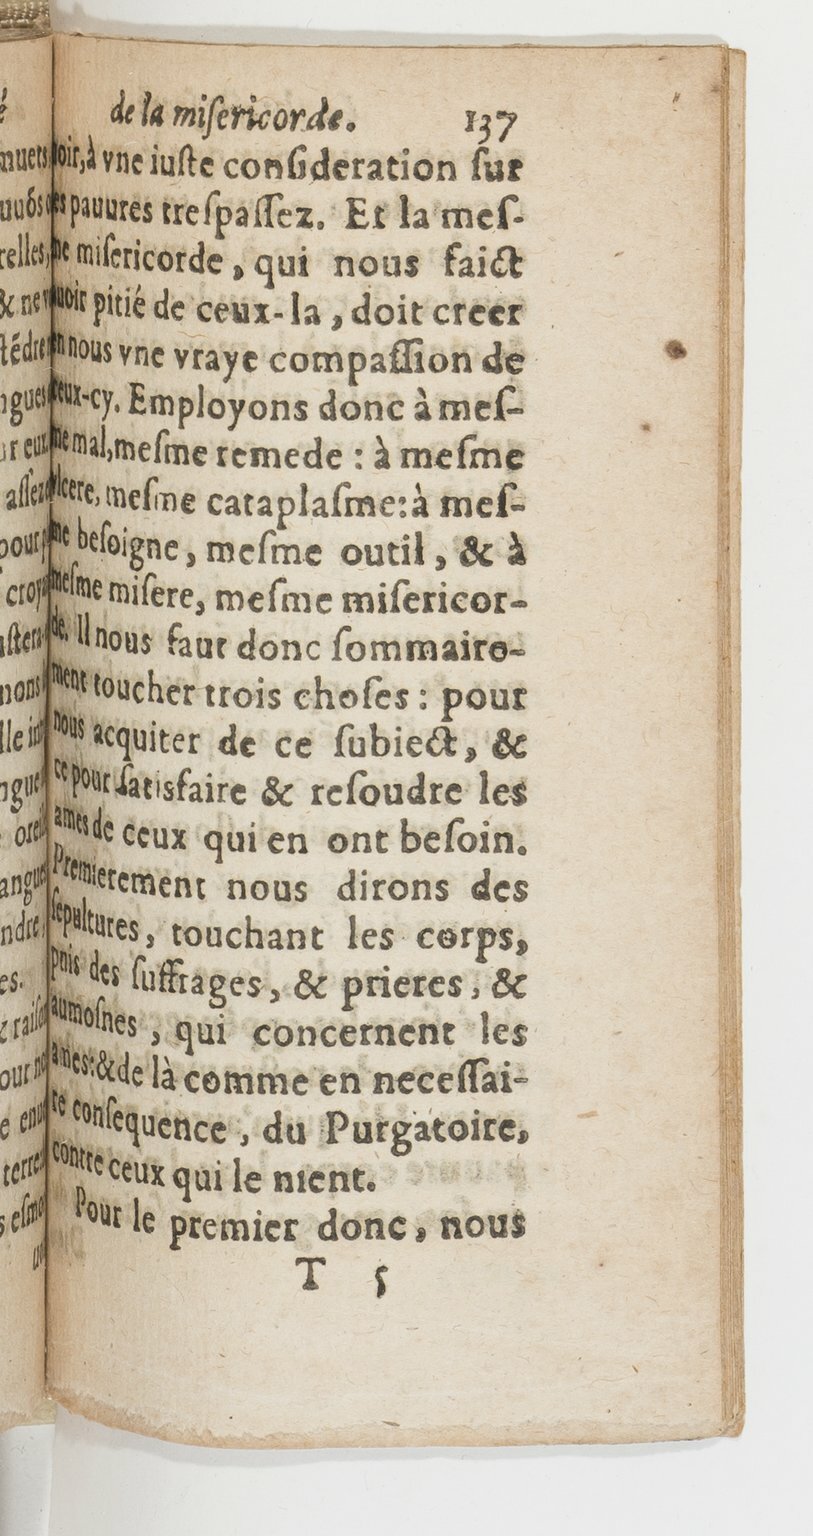 de la miſericorde. 137
oir, à vne iuſte conſideration ſur
es pauures treſpaſſez. Et la meſ-
me miſericorde, qui nous faict
uoir pitié de ceux-la, doit creer
en nous vne vraye compaſſion de
ceux-cy. Employons donc à meſ-
me mal, meſme remede : à meſme
vlcere, meſme cataplaſme: à meſ-
me beſoigne, meſme outil, & à
meſme miſere, meſme miſericor-
de. Il nous faut donc ſommaire-
ment toucher trois choſes : pour
nous acquiter de ce ſubiect, &
ce pour ſatisfaire & reſoudre les
ames de ceux qui en ont beſoin.
Premierement nous dirons des
ſepultures, touchant les corps,
puis des ſuffrages, & prieres, &
aumoſnes, qui concernent les
ames: & de là comme en neceſſai-
re conſequence, du Purgatoire,
contre ceux qui le nient.
Pour le premier donc, nous
T 5